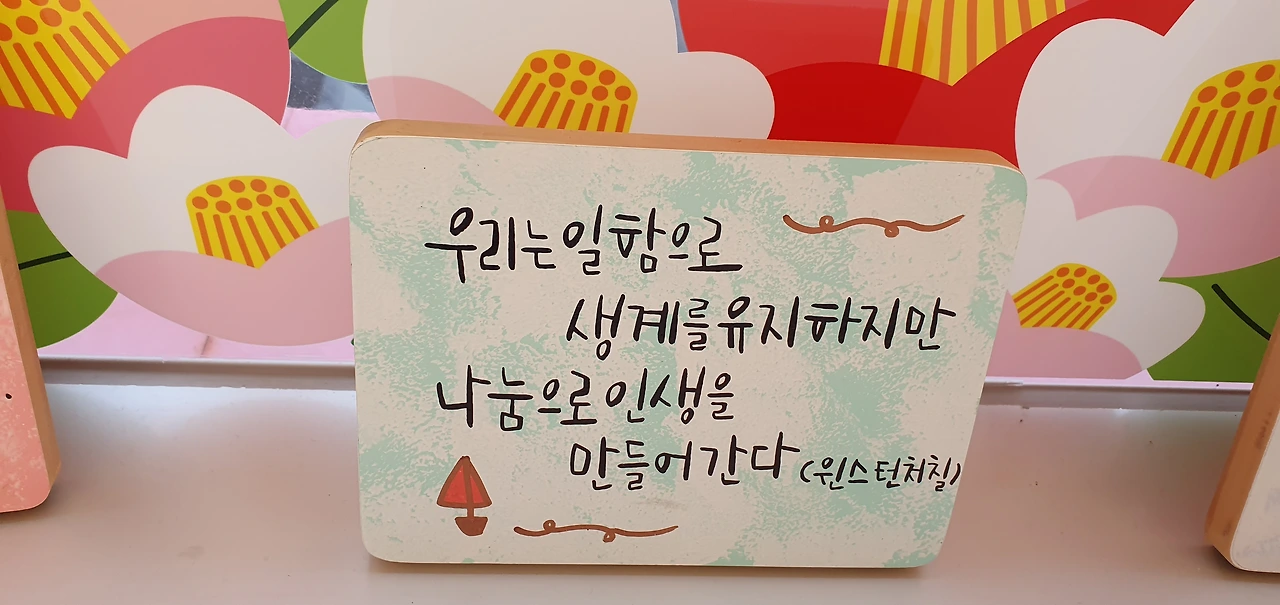 우리는 일함으로
생계를 유지하지만
나눔으로 인생을
만들어간다 (윈스턴처칠)